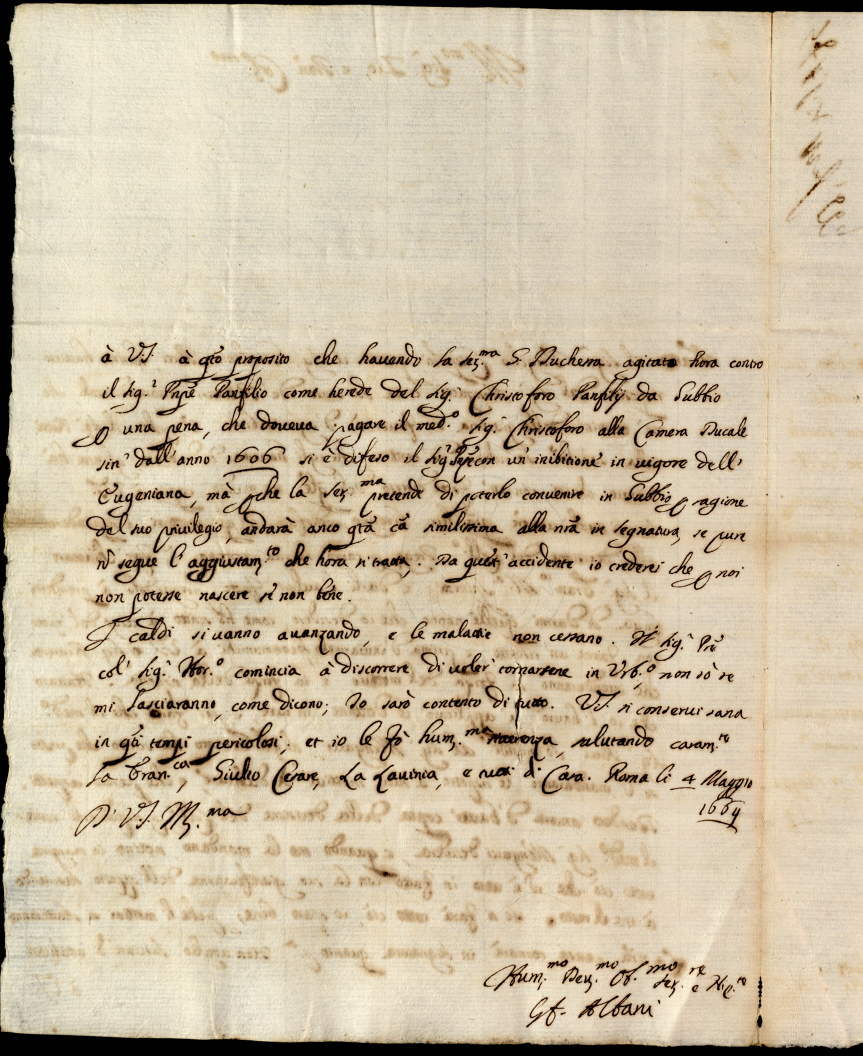 à V.S. à q̃to proposito che hauendo la Ser.ma S. Duchessa agitato hora contro
il Sig.r Prṽpe Panfilio come herede del Sig.r Christoforo Panfilij da Gubbio
p una pena, che doueua pagare il med.o Sig.r Christoforo alla Camera Ducale
sin' dall'anno 1606 si è difeso il Sig.r Prṽpe con un' inibitione in uigore dell'
Eugeniana, mà pche la Ser.ma pretende di poterlo conuenire in Gubbio p ragione
del suo priuilegio, andarà anco q̃ta cã similissima alla nrã in segnatura, se pure
nõ segue l'aggiustam.to che hora si tratta. Da quest'accidente io crederei che p noi
non potesse nascere se non bene.
I caldi si uanno auanzando, e le malatie non cessano. Il Sig.r Prẽ
col' Sig.r Hor.o comincia à discorrere di uoler' tornarsene in Urb.o non sò se
mi lasciaranno, come dicono; Io sarò contento di tutto. V.S. si conserui sana
in q̃ti tempi pericolosi, et io le fò hum.ma riuerenza, salutando caram.te
la Fran.ca, Giulio Cesare, La Lauinia, e tutti di Casa. Roma li 4 Maggio
1664
D' V.S. M.ma
Hum.mo Deu.mo Ob.mo Ser.re e
Gf. Albani